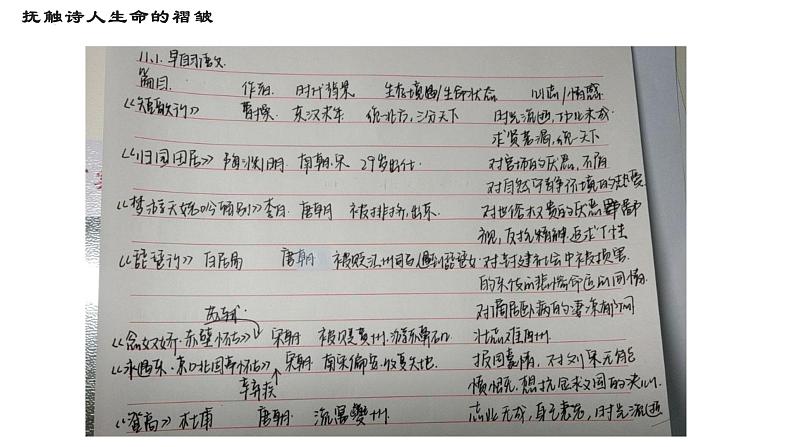 抚触诗人生命的褶皱
11.1.早自语文
篇目 作者 时代背景 生存境遇/生命状态 心志/情感
《短歌行》 曹操 东汉末年 统北方,三分天下 时光流逝,功业未成
求贤若渴,统一天下
《归园田居》 陶渊明 南朝·宋 29岁出仕 对官场的厌恶,不屑
对自然宁静环境的热爱
《梦游天姥吟留别》 李白 唐朝 被排挤,出京 对世俗权贵的厌恶鄙
视,反抗精神,追求个性
《琵琶行》 白居易 唐朝 被贬江州司马,遇到琵琶女 对封建社会中被损害
的乐伎的悲惨命运的同情
对谪居卧病的凄凉郁闷
苏轼
《念奴娇·赤壁怀古》 宋朝 被贬黄州,游赤壁 壮志难酬
《永遇乐·京口北固亭怀古》 宋朝 南宋偏安,收复失地 报国豪情,对刘宋无能
辛弃疾 愤恨,想抗金救国的决心
《登高》 杜甫 唐朝 流寓夔州 志业无成,身无衰老,时光流逝